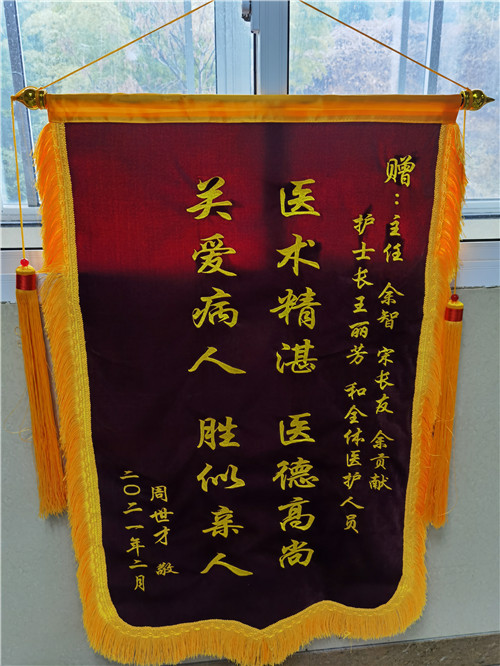 赠：主任 余智 宋长友 余贡献
护士长王丽芳 和全体医护人员
医术精湛 医德高尚
关爱病人 胜似亲人
周世才 敬
二〇二一年二月